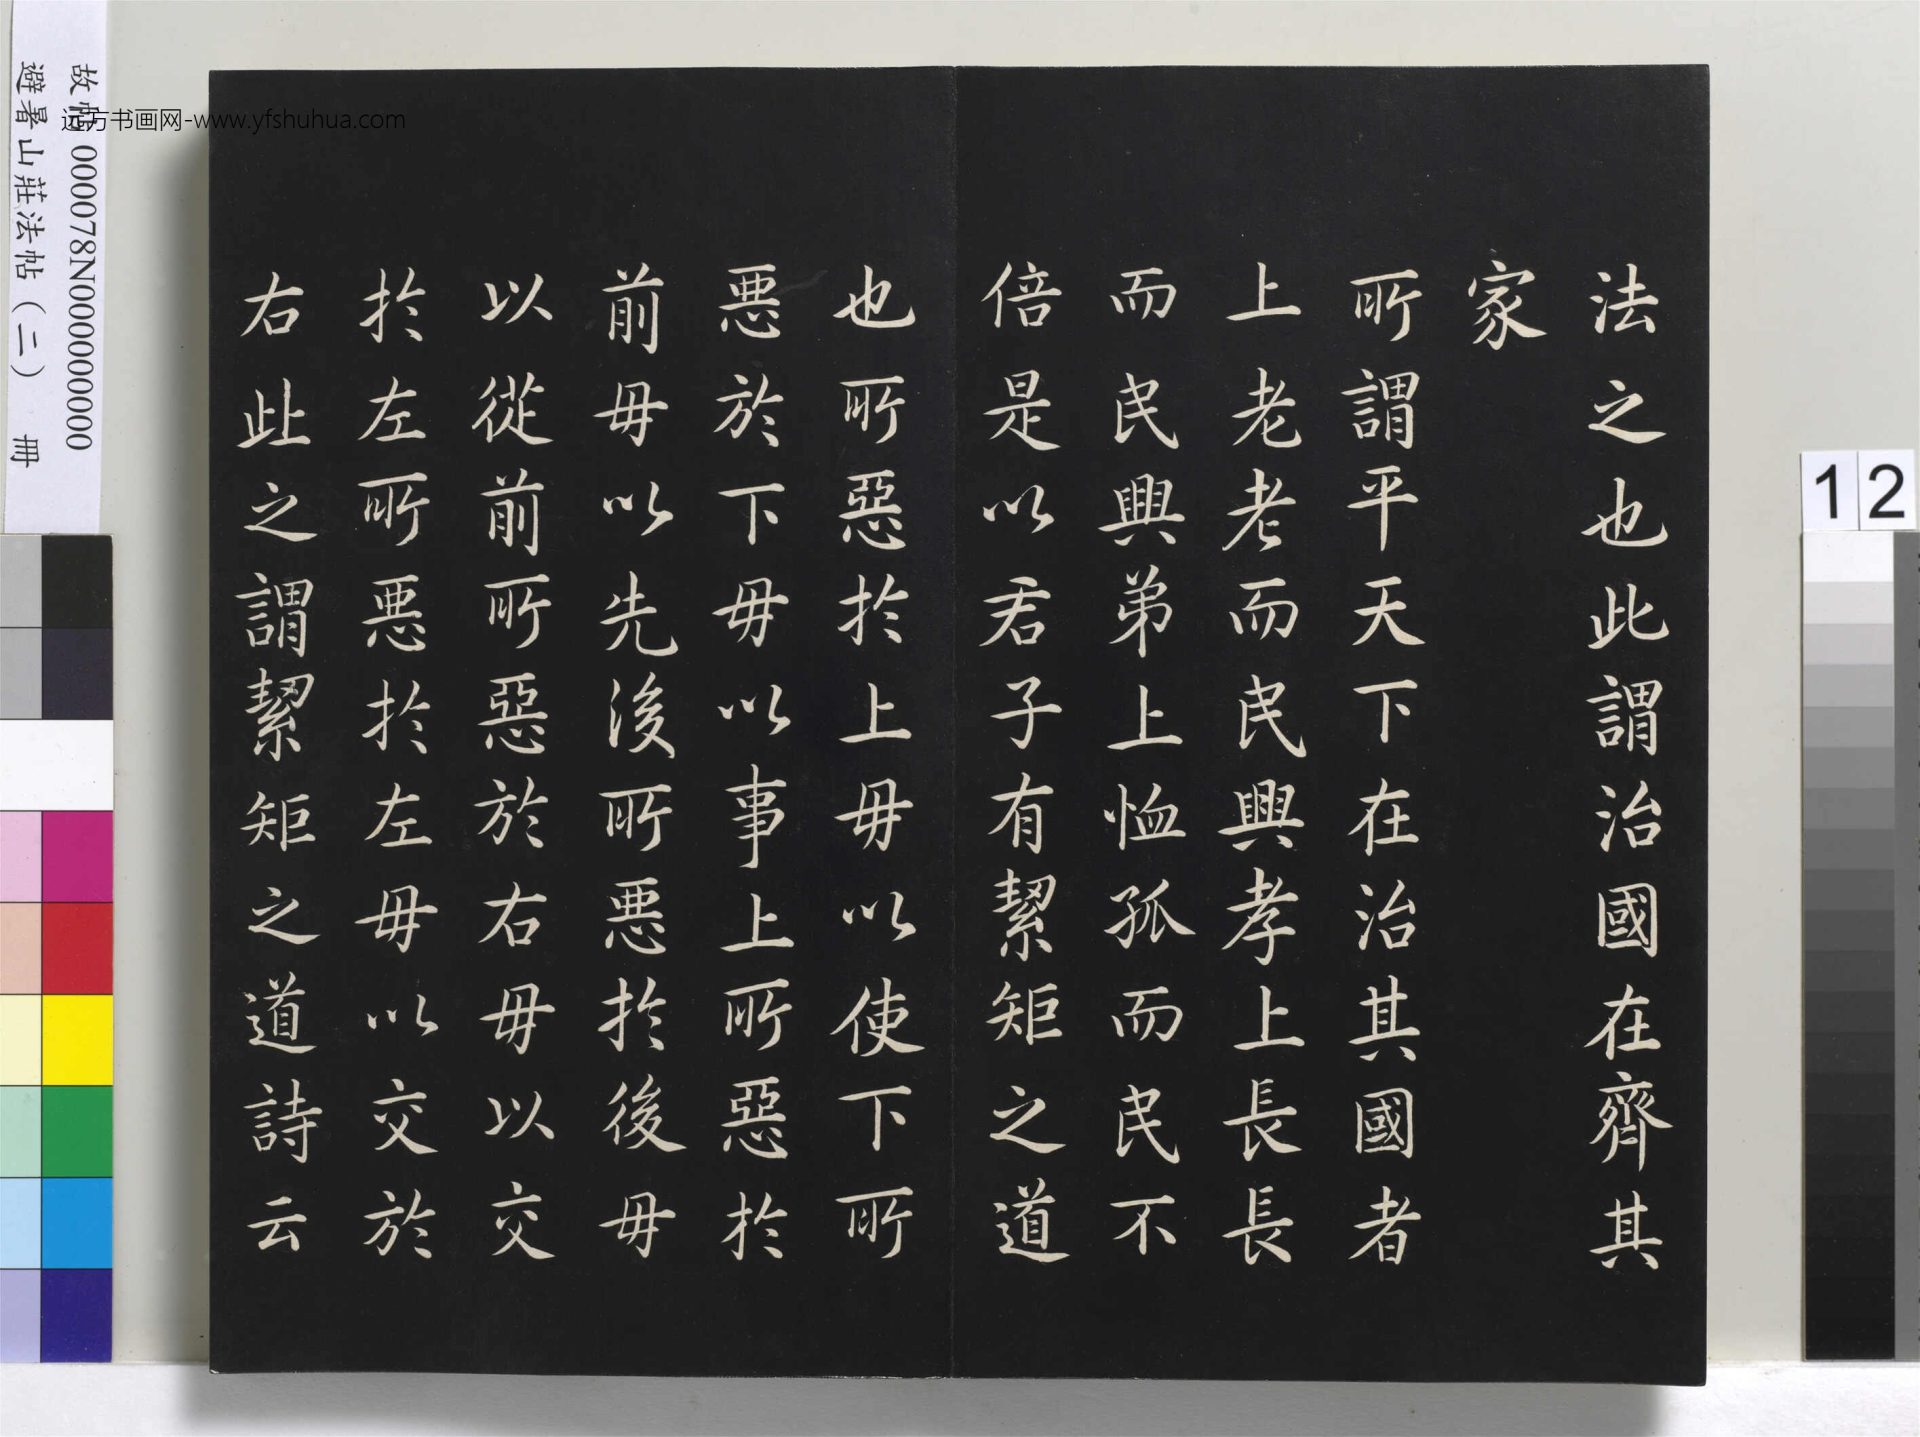 法之也此謂治國在齊其
家
所謂平天下在治其國者
上老老而民興孝上長長
而民興弟上恤孤而民不
倍是以君子有絜矩之道
也所惡於上毋以使下所
悪於下毋以事上所惡於
前毋以先後所悪於後毋
以從前所惡於右毋以交
於左所悪於左毋以交於
右此之謂絜矩之道詩云
000078N000000000
避暑山莊法帖(二) 冊
远方书画网-www.yfshuhua.com
12